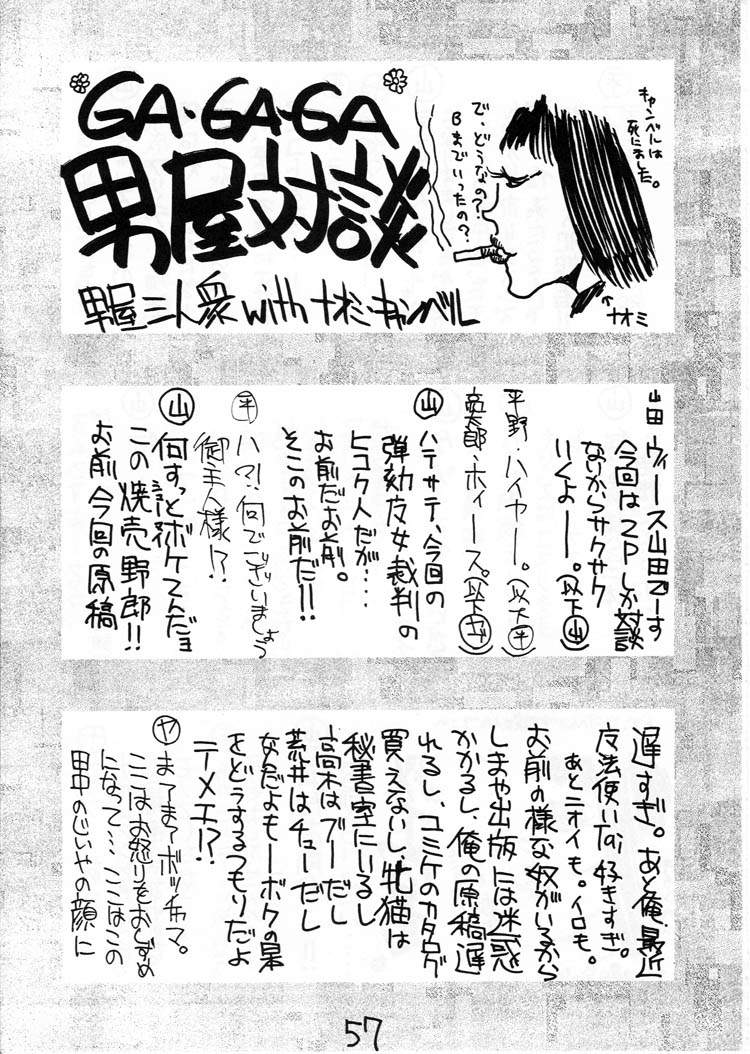 GA・GA・GA
男屋対談
男屋三人衆withナオミ・キャンベル
キャンベルは
死にました。
で、どうなの？
Bまでいったの？
↑
ナオミ
山田 ウィース山田でーす
今回は2Pしか対談
ないからサクサク
いくよー。(以下山)
平野・ハイヤー。(以下平)
・ホィース。(以下ヤ)
山 ハテサテ、今回の
弾劾友女裁判の
ヒコク人だが‥‥
お前だお前。
そこのお前だ!!
平 ハ？！何でございましょう
御主人様！？
山 何すっとボケてんだョ
この焼売野郎!!
お前今回の原稿
遅すぎ。あと俺、最近
友法使いTai好きすぎ。
あとニオイも。イロも。
お前の様な奴がいるから
しまや出版には迷惑
かかるし、俺の原稿遅
れるし、コミケのカタログ
買えないし、牝猫は
秘書室にいるし
高木はブーだし
荒井はチューだし
なんだよもーボクの
をどうするつもりだよ
テメエ！？
ヤ まてまてボッチャマ。
ここはお怒りをおしずめ
になって…ここはこの
田中のじいやの顔に
57